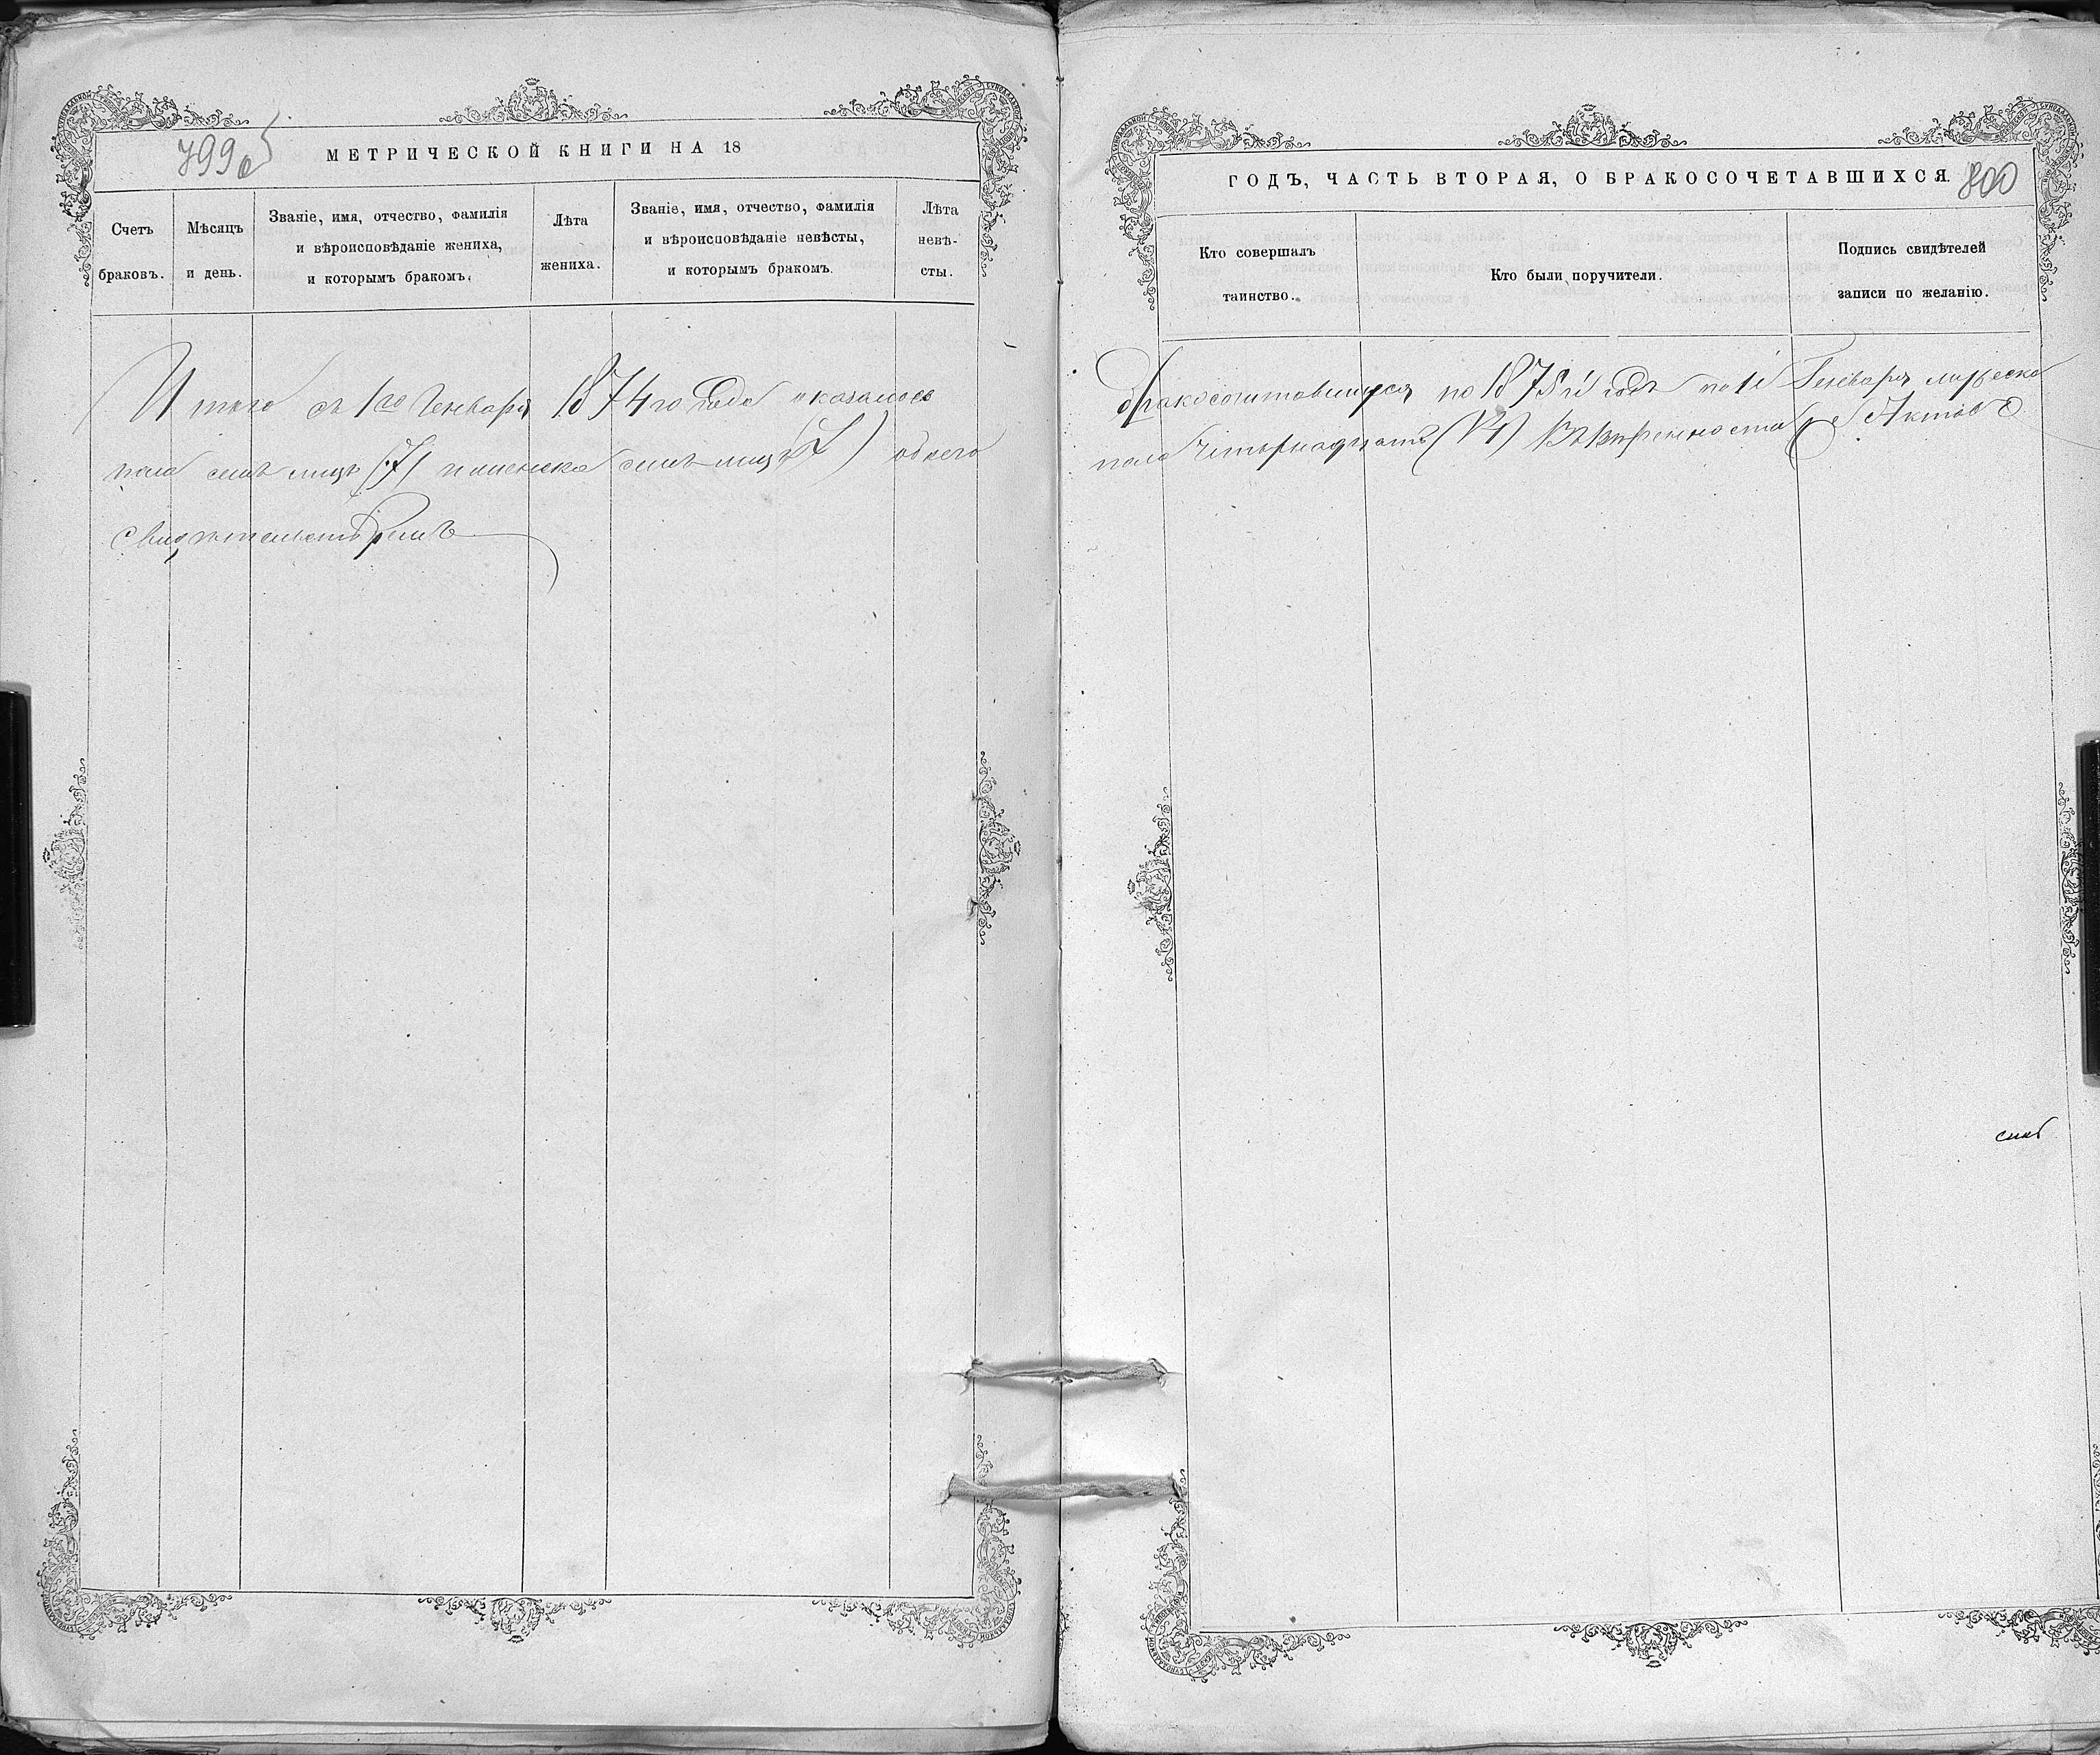 799об
МЕТРИЧЕСКОЙ КНИГИ НА 18
Счетъ браковъ.
Мѣсяцъ и день.
Званіе, имя, отчество, фамилія и вѣроисповѣданіе жениха, и которымъ бракомъ.
Лѣта жениха.
Званіе, имя, отчество, фамилія и вѣроисповѣданіе невѣсты, и которымъ бракомъ.
Лѣта невѣсты.
Итого съ 1го Генваря 1874го года оказалось
пола семь лицъ (7) и женска семь лицъ (7) обоего
свидѣтельствуемъ
ГОДЪ, ЧАСТЬ ВТОРАЯ, О БРАКОСОЧЕТАВШИХСЯ.
800
Кто совершалъ таинство.
Кто были поручители.
Подпись свидѣтелей записи по желанію.
бракосочитавшихся по 1875й годъ по 1е Генваря мужеска
пола четырнадцать (14) Въ вѣрности Актовъ